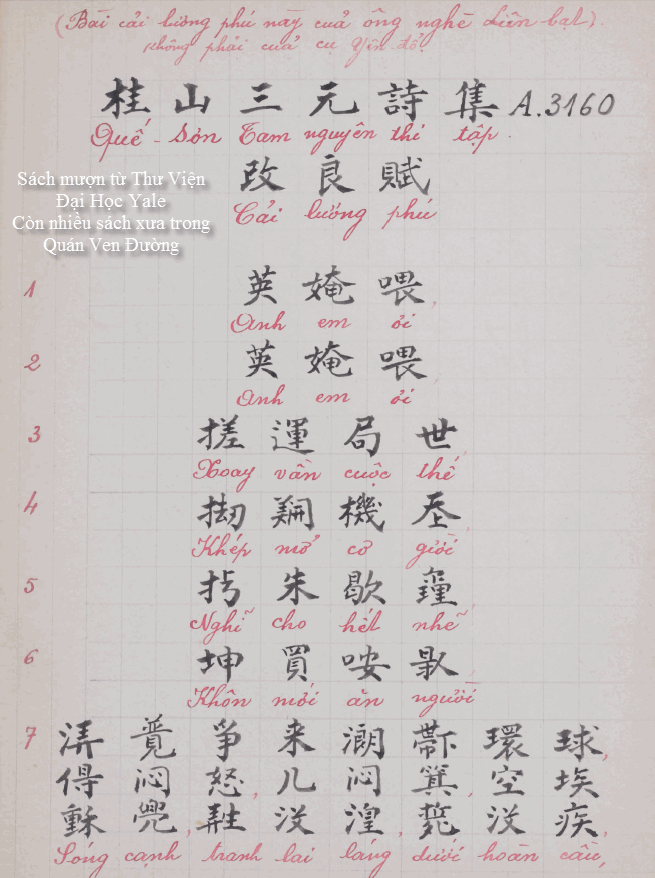 (Bài cải lương phú này của ông nghè Liên bạt).
không phải của cụ Yên đổ.
桂山三元詩集 A.3160
Quế-Sơn Tam nguyên thi tập.
改良賦
Cải lương phú
Sách mượn từ Thư Viện
Đại Học Yale
Còn nhiều sách xưa trong
Quán Ven Đường
1 英媕喂,
Anh em ôi
2 英媕喂
Anh em ôi
3 搓運局世,
Xoay vần cuộc thế
4 機
Khép mở cơ giời
5 朱歇
Nghĩ cho hết nhẽ
6 坤買咹
Khôn mới ăn người
7 竟爭来潮環球,
悶怒,几悶箕,空埃
穌覺,沒湟,沒疾,
Sóng cạnh tranh lai láng dưới hoàn cầu,